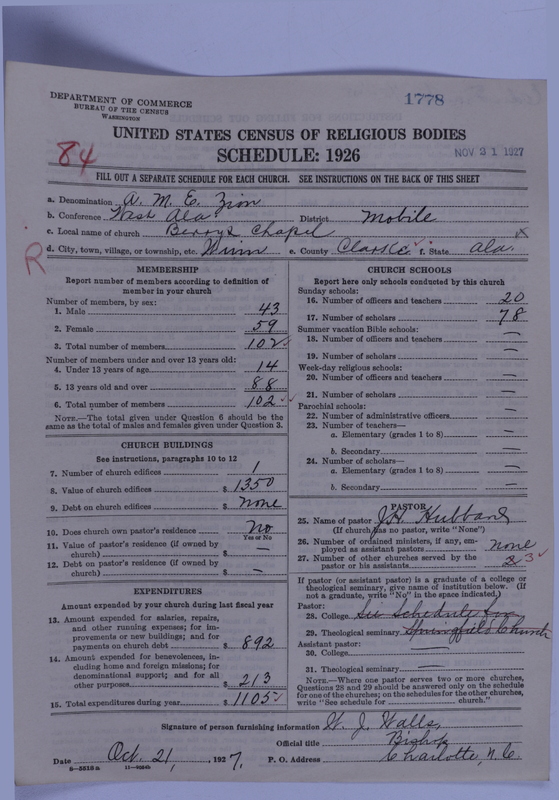 DEPARTMENT OF COMMERCE
BUREAU OF THE CENSUS
WASHINGTON
1778
UNITED STATES CENSUS OF RELIGIOUS BODIES
84
SCHEDULE: 1926
NOV 21 1927
FILL OUT A SEPARATE SCHEDULE FOR EACH CHURCH. SEE INSTRUCTIONS ON THE BACK OF THIS SHEET
a. Denomination A. M. E. Zion
b. Conference West Ala District Mobile
c. Local name of church Berrys Chapel x
d. City, town, village, or township, etc. Winn e. County Clarke f. State Ala.
R
MEMBERSHIP
Report number of members according to definition of
member in your church
Number of members, by sex:
1. Male 43
2. Female 59
3. Total number of members 102
Number of members under and over 13 years old:
4. Under 13 years of age 14
5. 13 years old and over 88
6. Total number of members 102
NOTE.—The total given under Question 6 should be the
same as the total of males and females given under Question 3.
CHURCH BUILDINGS
See instructions, paragraphs 10 to 12
7. Number of church edifices 1
8. Value of church edifices $ 1350
9. Debt on church edifices $ none
10. Does church own pastor's residence No
Yes or No
11. Value of pastor's residence (if owned by
church) $ —
12. Debt on pastor's residence (if owned by
church) $ —
EXPENDITURES
Amount expended by your church during last fiscal year
13. Amount expended for salaries, repairs,
and other running expenses; for im-
provements or new buildings; and for
payments on church debt $ 892
14. Amount expended for benevolences, in-
cluding home and foreign missions; for
denominational support; and for all
other purposes $ 213
15. Total expenditures during year $ 1105
CHURCH SCHOOLS
Report here only schools conducted by this church
Sunday schools:
16. Number of officers and teachers 20
17. Number of scholars 78
Summer vacation Bible schools:
18. Number of officers and teachers —
19. Number of scholars —
Week-day religious schools:
20. Number of officers and teachers —
21. Number of scholars —
Parochial schools:
22. Number of administrative officers —
23. Number of teachers—
a. Elementary (grades 1 to 8) —
b. Secondary —
24. Number of scholars—
a. Elementary (grades 1 to 8) —
b. Secondary —
PASTOR
25. Name of pastor J. H. Hubbard
(If church has no pastor, write "None")
26. Number of ordained ministers, if any, em-
ployed as assistant pastors none
27. Number of other churches served by the
pastor or his assistants 2 3
If pastor (or assistant pastor) is a graduate of a college or
theological seminary, give name of institution below. (If
not a graduate, write "No" in the space indicated.)
Pastor:
28. College See Schedule for
29. Theological seminary Springfield Church
Assistant pastor:
30. College —
31. Theological seminary —
NOTE.—Where one pastor serves two or more churches,
Questions 28 and 29 should be answered only on the schedule
for one of the churches; on the schedules for the other churches,
write "See schedule for church."
Signature of person furnishing information W. J. Walls
Official title Bishop
Date Oct. 21, 1927. P. O. Address Charlotte, N. C.